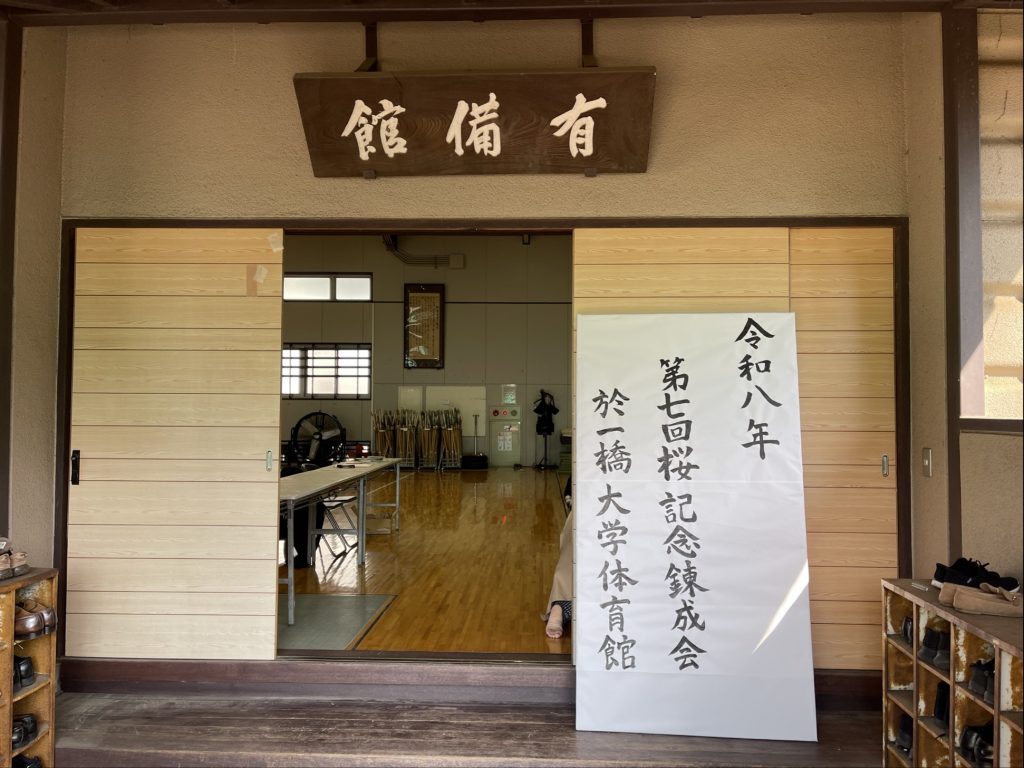 有備館
令和八年
第七回桜記念錬成会
於一橋大学体育館